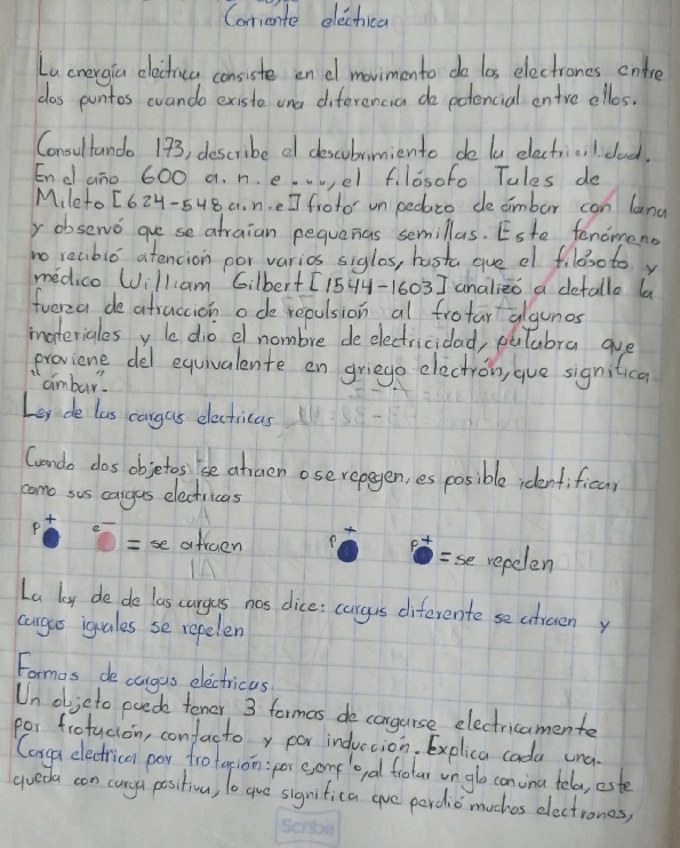 Corriente eléctrica
La energía eléctrica consiste en el movimento de los electrones entre
dos puntos cuando existe una diferencia de potencial entre ellos.
Consultando 173, describe el descubrimiento de la electricilidad.
En el año 600 a.n.e...., el filósofo Tales de
Mileto [624-548 a.n.e] frotó un pedazo de ámbar con lana
y observó que se atraían pequeñas semillas. Este fenómeno
no recibió atención por varios siglos, hasta que el filósofo y
médico William Gilbert [1544-1603] analizó a detalle la
fuerza de atracción o de repulsión al frotar algunos
materiales y le dio el nombre de electricidad, palabra que
proviene del equivalente en griego electrón, que significa
"ámbar".
Ley de las cargas electricas
Cuando dos objetos se atraen o se repegen, es posible identificar
como sus cargas electricas
p + e - = se atraen p + p + = se repelen
La ley de de las cargas nos dice: cargas diferente se atraen y
cargas iguales se repelen
Formas de cargas eléctricas
Un objeto puede tener 3 formas de cargarse electricamente
por frotación, contacto y por inducción. Explica cada una.
Carga electrica por frotación: por ejemplo, al frotar un glo con una tela, este
queda con carga positiva, lo que significa que perdió muchos electrones,
Scribe